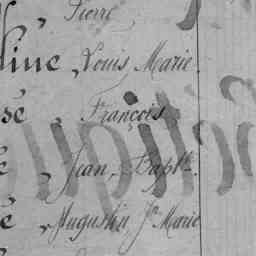 , Pierre
line, Louis Marie.
se, François
e, Jean, Bapte.
e, Augustin, Jn Marie